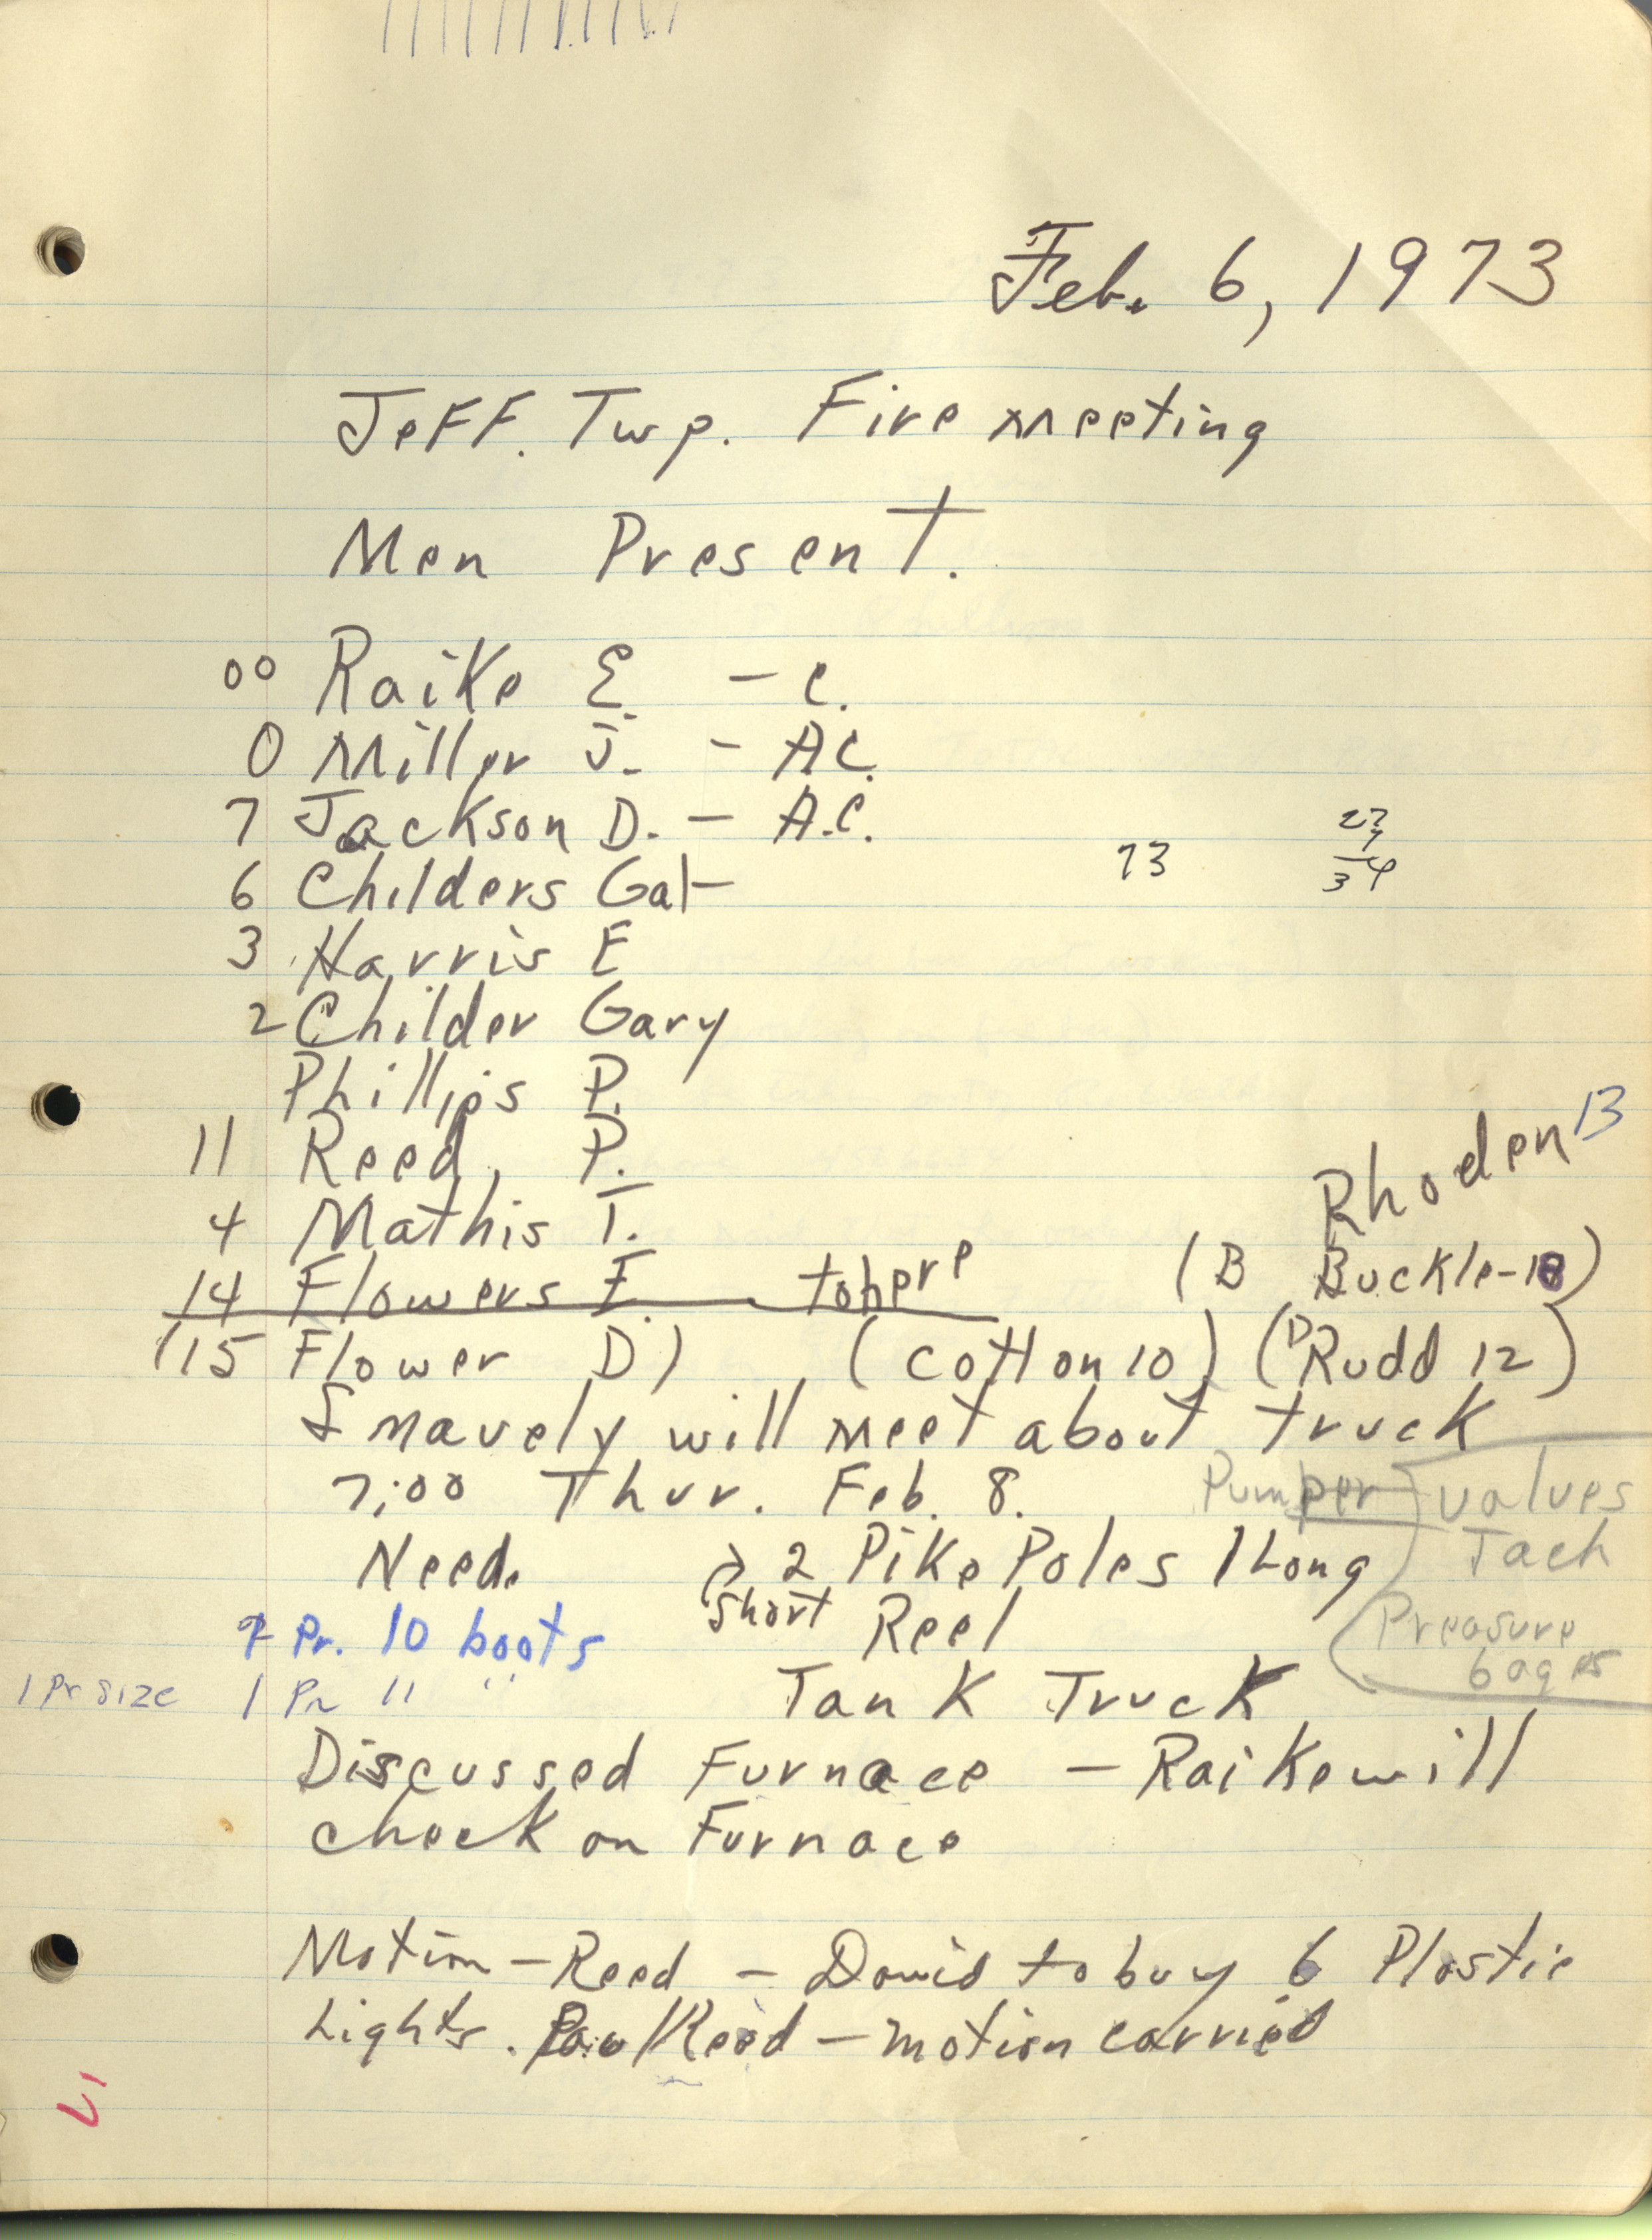 Feb. 6, 1973
Jeff. Twp. Fire meeting
Men Present.
00 Raike E. - C.
0 Miller J. - A.C.
7 Jackson D. - A.C.
6 Childers Gal-
73
27
7
34
3 Harris E
2 Childer Gary
Phillips P.
11 Reed, P.
4 Mathis T.
Rhoden 13
14 Flowers E. to here
(B Buckle-18)
(15 Flower D) (Cotton 10) (D Rudd 12)
Smavely will meet about truck
7:00 Thur. Feb. 8.
Pumper valves
Tach
Preasure
gages
Need. 2 Pike Poles 1 Long
short
Reel
Pr. 10 boots
1 Pr size 1 Pr 11 "
Tank Truck
Discussed Furnace - Raike will
check on Furnace
Motion - Reed - David to buy 6 Plastic
Lights. Paul Reed - motion carried